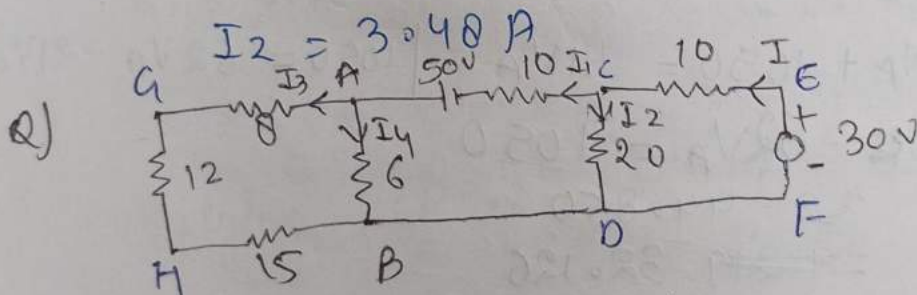 I2 = 3.48 A
Q)
G I3 A 50V 10 I1 C 10 I E
8 I4 I2 + 30V
12 6 20 -
H 15 B D F